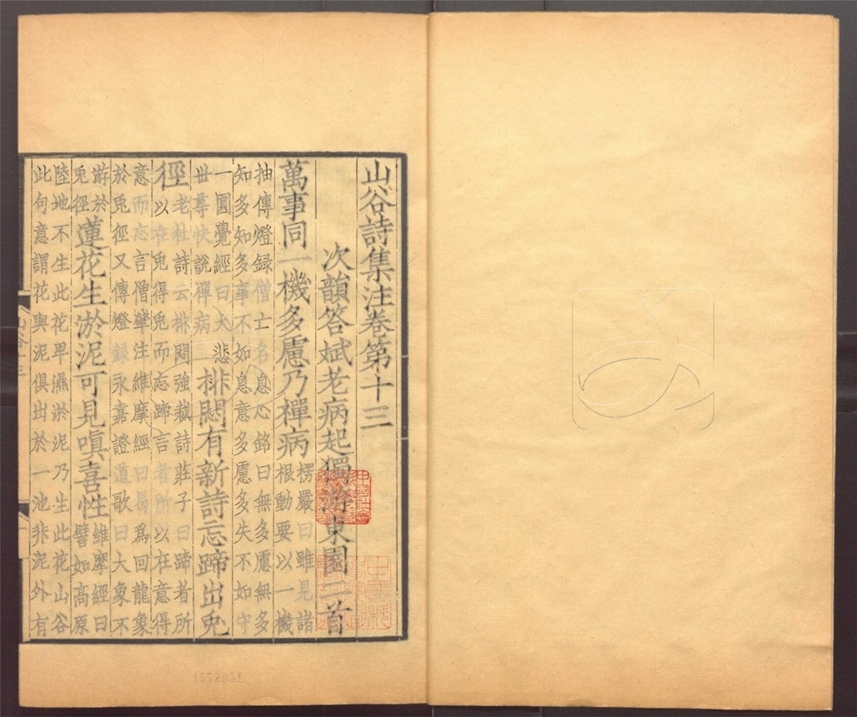 山谷詩集注卷第十三
次韻答斌老病起獨游東園二首
萬事同一機多慮乃禪病楞嚴曰雖見諸
根動要以一機
抽傳燈録僧亡名息心銘曰無多慮無多
知多知多事不如息意多慮多失不如守
一圓覺經曰大悲
世尊快說禪病排悶有新詩忘蹄出兔
徑老杜詩云排悶強裁詩莊子曰蹄者所
以在兔得兔而忘蹄言者所以在意得
意而忘言僧肇注維摩經曰曷為回龍象
於兔徑又傳燈録永嘉證道歌曰大象不
游於
兔徑蓮花生淤泥可見嗔喜性維摩經曰
譬如高原
陸地不生此花卑濕淤泥乃生此花山谷
此句意謂花與泥俱出於一池非泥外有